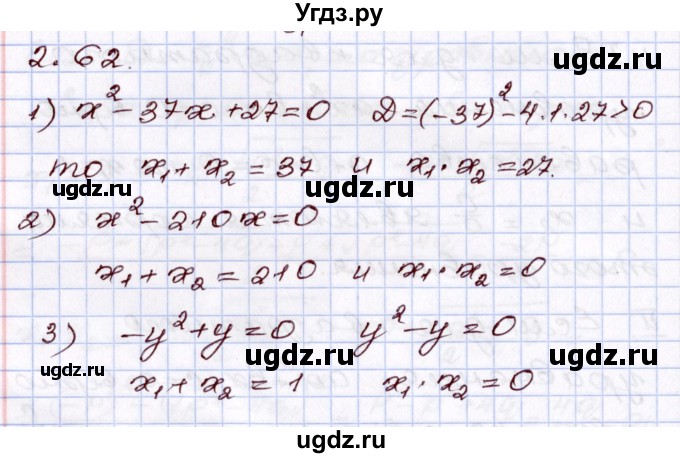 Угдз.ру
2.62.
1) x² - 37x + 27 = 0   D = (-37)² - 4·1·27 > 0
то x₁ + x₂ = 37 и x₁·x₂ = 27.
ugdz.ru
ugdz.ru
2) x² - 210x = 0
x₁ + x₂ = 210 и x₁·x₂ = 0
3) -y² + y = 0   y² - y = 0
ugdz.ru
ugdz.ru
ugdz.ru
x₁ + x₂ = 1   x₁·x₂ = 0
ugdz.ru